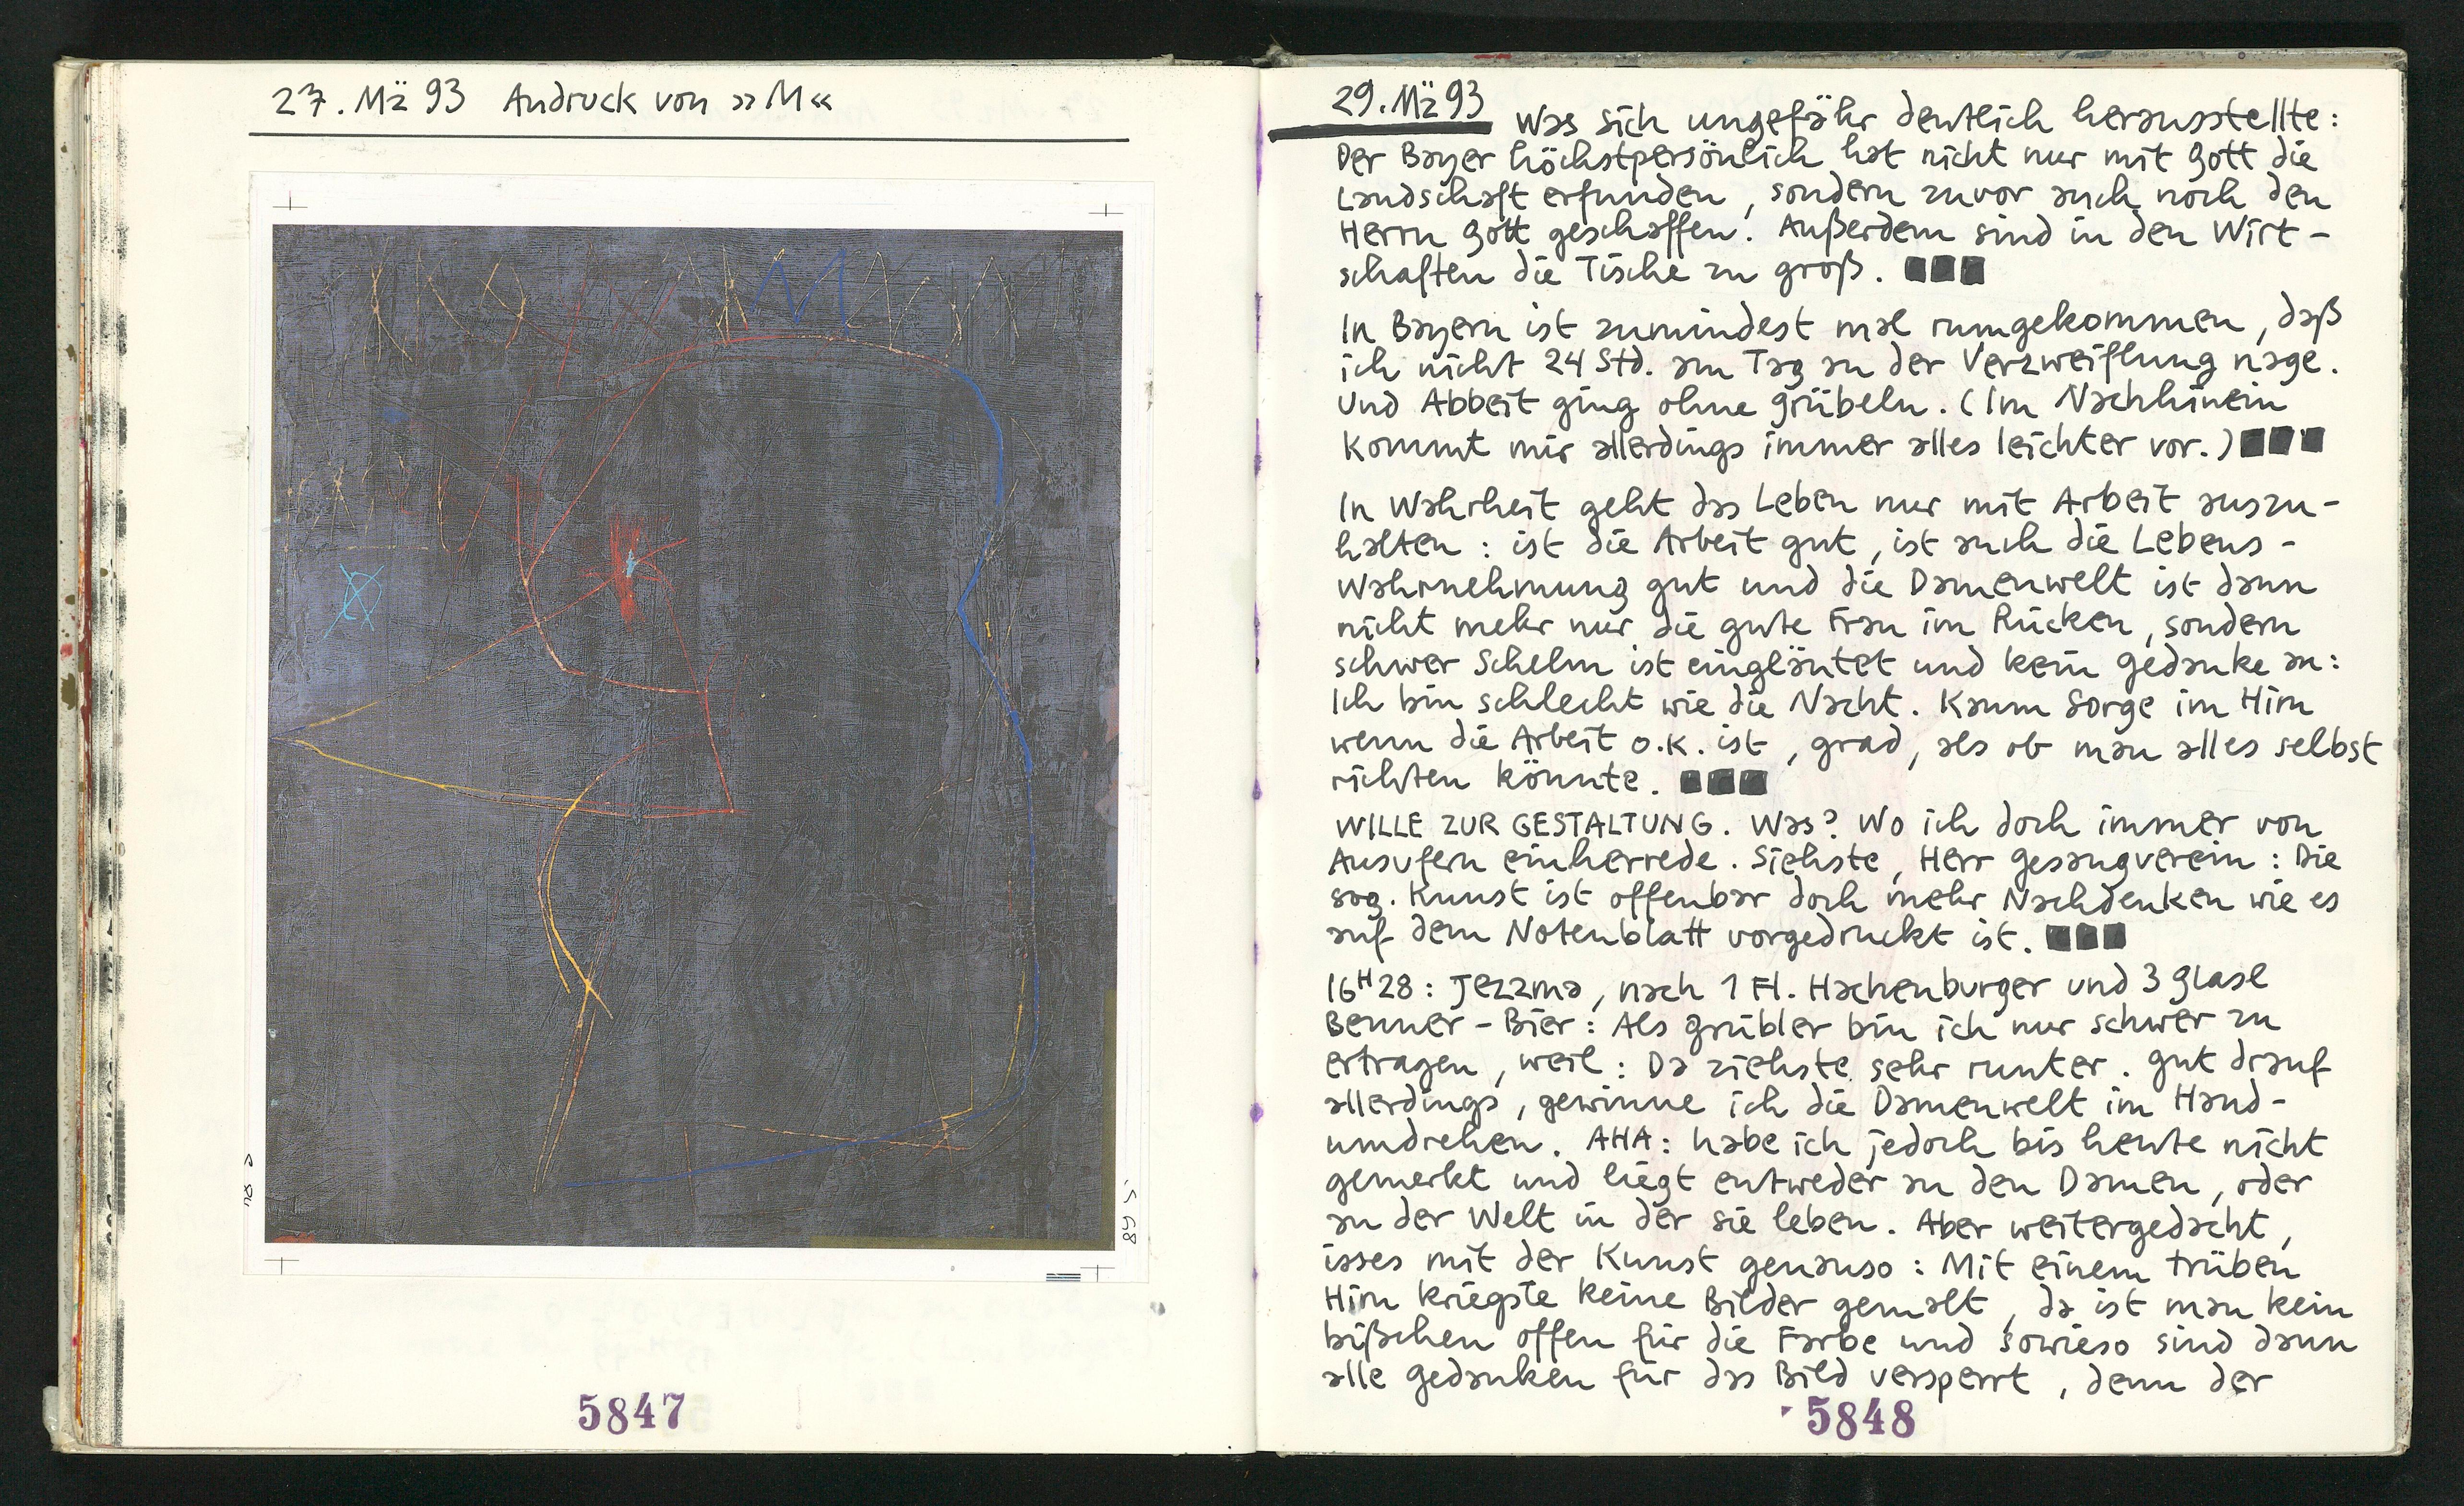 27. Mä 93 Andruck von »M«
5847
29. Mä 93
Was sich ungefähr deutlich herausstellte:
Der Bayer höchstpersönlich hat nicht nur mit Gott die
Landschaft erfunden, sondern zuvor auch noch den
Herrn Gott geschaffen. Außerdem sind in den Wirt-
schaften die Tische zu groß. ■■■
In Bayern ist zumindest mal rumgekommen, daß
ich nicht 24 Std. am Tag an der Verzweiflung nage.
Und Abbeit ging ohne Grübeln. (Im Nachhinein
kommt mir allerdings immer alles leichter vor.) ■■■
In Wahrheit geht das Leben nur mit Arbeit auszu-
halten: ist die Arbeit gut, ist auch die Lebens-
wahrnehmung gut und die Damenwelt ist dann
nicht mehr nur die gute Frau im Rücken, sondern
schwer Schelm ist eingläutet und kein Gedanke an:
Ich bin schlecht wie die Nacht. Kaum Sorge im Hirn
wenn die Arbeit o.k. ist, grad, als ob man alles selbst
richten könnte. ■■■
WILLE ZUR GESTALTUNG. Was? Wo ich doch immer von
Ausufern einherrede. Siehste, Herr Gesangverein: Die
sog. Kunst ist offenbar doch mehr Nachdenken wie es
auf dem Notenblatt vorgedruckt ist. ■■■
16H28: Jezzma, nach 1 Fl. Hachenburger und 3 Glase
Benner-Bier: Als Grübler bin ich nur schwer zu
ertragen, weil: Da ziehste sehr runter. Gut drauf
allerdings, gewinne ich die Damenwelt im Hand-
umdrehen. AHA: habe ich jedoch bis heute nicht
gemerkt und liegt entweder an den Damen, oder
an der Welt in der sie leben. Aber weitergedacht,
isses mit der Kunst genauso: Mit einem trüben
Hirn kriegste keine Bilder gemalt, da ist man kein
bißchen offen für die Farbe und sowieso sind dann
alle Gedanken für das Bild versperrt, denn der
5848